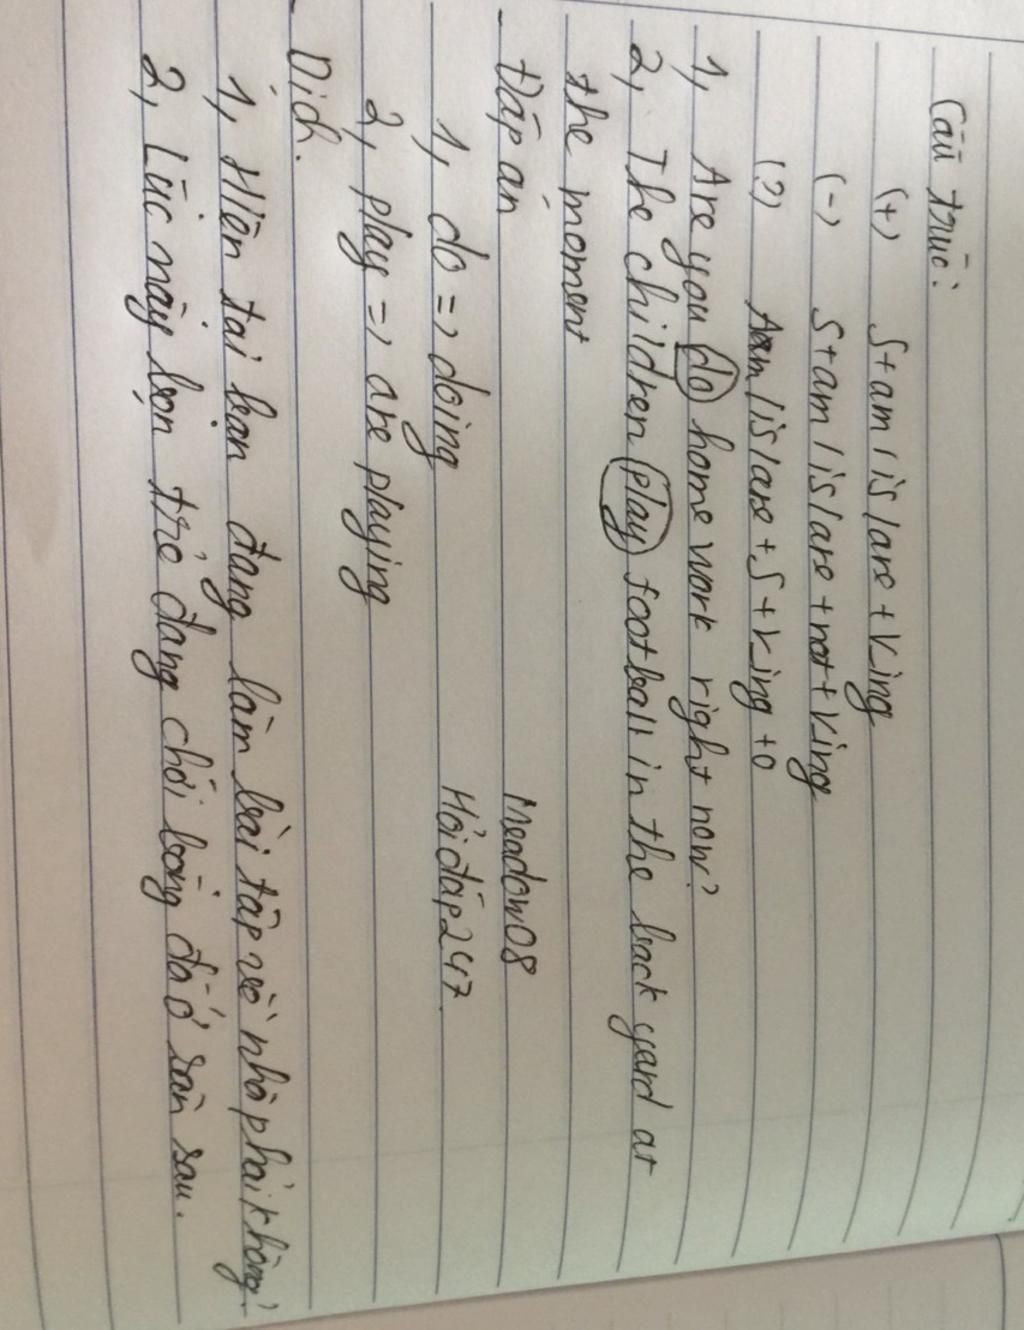 Cấu trúc:
(+) S+am/is/are+Ving
(-) S+am/is/are+not+Ving
(?) Am/is/are+S+Ving+O
1, Are you do home work right now?
2, The children play football in the back yard at
the moment
- Đáp án
Meadow08
1, do => doing
Hỏi đáp 247.
2, play => are playing
- Dịch.
1, Hiện tại bạn đang làm bài tập về nhà phải không?
2, Lúc này bọn trẻ đang chơi bóng đá ở sân sau.